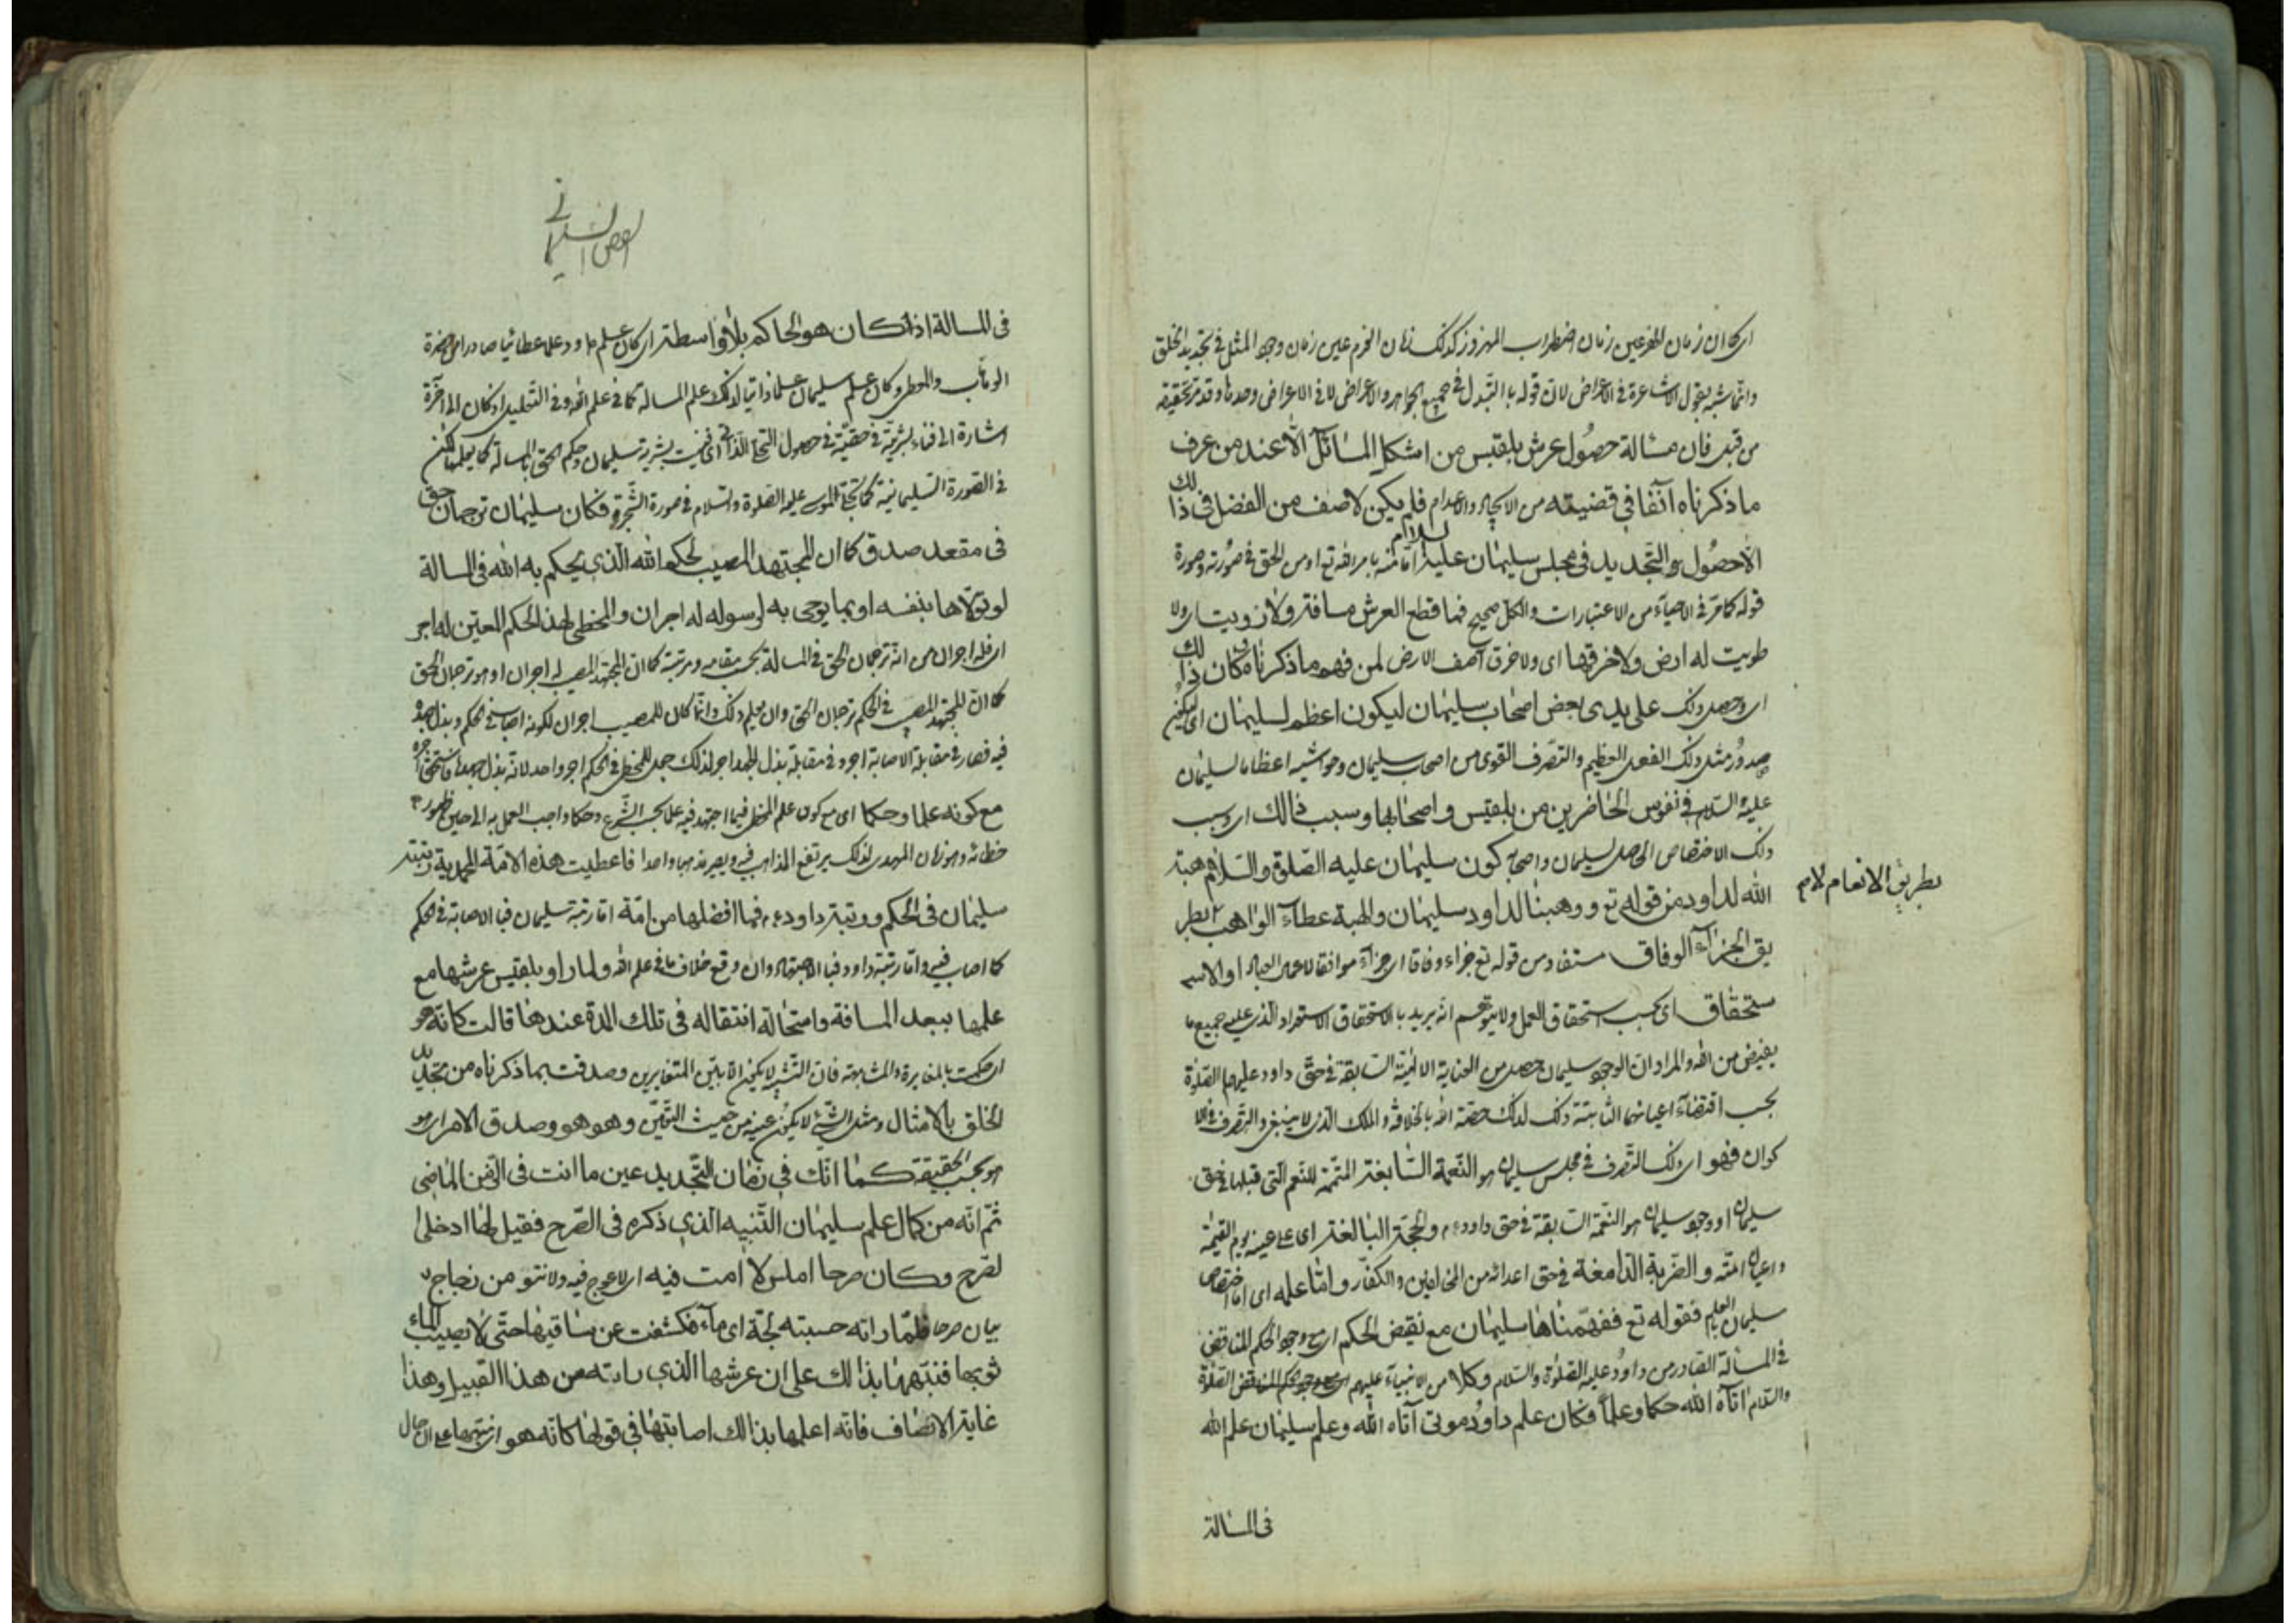 اى كما ان زمان الهز عين زمان اضطراب المهزوز كذلك زمان العدم عين زمان وجود المثل فى تجديد الخلق
وانما شبه بقول الاشاعرة فى الاعراض لان قوله بالتبدل فى جميع الجواهر والاعراض لا فى الاعراض وحدها وقد مر تحقيقه
من قبل فان مسالة حصول عرش بلقيس من اشكل المسائل الا عند من عرف
ما ذكرناه آنفا فى قضيته من الايجاد والاعدام فلم يكن لاصف من الفضل فى ذالك
الا حصول التجديد فى مجلس سليمان عليه السلام اما منه بامر الله تع او من الحق فى صورته وصورة
قوله كما مر فى الاحياء من الاعتبارات والكل صحيح فما قطع العرش مسافة ولا زويت له ارض ولا
طويت له ارض ولا خرقها اى ولا خرق آصف الارض لمن فهم ما ذكرناه وكان ذالك
اى وحصل ذلك على يدى بعض اصحاب سليمان ليكون اعظم لسليمان اى ليكون
صدور مثل ذلك الفعل العظيم والتصرف القوى من اصحاب سليمان وحواشيه اعظاما لسليمان
عليه السلام فى نفوس الحاضرين من بلقيس واصحابها وسبب ذالك اى وسبب
ذلك الاختصاص الحاصل لسليمان واصحابه كون سليمان عليه الصلوة والسلام هبة
الله لداود من قوله تع ووهبنا لداود سليمان والهبة عطاء الواهب بطر
بطريق الانعام لا م
يق الجزاء الوفاق مستفاد من قوله تع جزاء وفاقا اى جزاء موافقا لاعمال العباد او الا
ستحقاق اى بحسب استحقاق العمل ولا يتوهم انه يريد بالاستحقاق الاستعداد الذى عليه جميع ما
يفيض من الله والمراد ان الوجود سليمان حصل من العناية الالهية السابقة فى حق داود عليهما الصلوة
بحسب اقتضاء اعيانهما الثابتة ذلك لذلك خصه الله بالخلافة والملك الذى لا ينبغى والتصرف فى الا
كوان فهو اى ذلك التصرف فى مجلس سليمان هو النعمة السابغة المتممة للنعم التى قبلها فى حق
سليمان او وجود سليمان هو النعمة السابقة فى حق داود ع م والحجة البالغة اى على عينه يوم القيمة
واعيان امته والضربة الدامغة فى حق اعدائه من المخالفين والكفار واما علمه اى اما اختصاص
سليمان بالعلم فقوله تع ففهمناها سليمان مع نقيض الحكم اى مع وجود الحكم المناقض
فى المسالة الصادر من داود عليه الصلوة والسلام وكلا من الانبياء عليهم الصلوة
والسلام اتاه الله حكما وعلما فكان علم داود موتى آتاه الله وعلم سليمان علم الله
فى المسالة
الفص السليمانى
فى المسالة اذا كان هو الحاكم بلا واسطة اى كان علم داود علما عطائيا صادرا من حضرة
الوهاب والمعطى وكان علم سليمان علما ذاتيا لذلك علم المسالة كما فى علم الله وفى التعليل اذ كان الى آخره
اشارة الى فناء بشريته فى حقيته فى حصول التجلى الذاتى اى فنيت بشرية سليمان وحكم الحق بالمسالة كما يعلمها لكن
فى الصورة السليمانية كما تجلى لموسى عليه الصلوة والسلام فى صورة الشجرة فكان سليمان ترجمان حق
فى مقعد صدق كما ان المجتهد المصيب لحكم الله الذى يحكم به الله فى المسالة
لو تولاها بنفسه او بما يوحى به لرسوله له اجران والمخطى لهذا الحكم المعين له اجر
اى فله اجران من انه ترجمان الحق فى المسالة بحسب مقامه ومرتبته كما ان المجتهد المصيب له اجران او هو ترجمان الحق
كما ان المجتهد المصيب فى الحكم ترجمان الحق وان لم يعلم ذلك وانما كان للمصيب اجران لكونه اصاب فى الحكم وبذل جهده
فيه فصار فى مقابلة الاصابة اجر وفى مقابلة بذل الجهد اجر لذلك جعل للمخطى فى الحكم اجر واحد لانه بذل جهده فاستحق اجره
مع كونه علما وحكما اى مع كون علم المخطى فيما اجتهد فيه علما بحسب الشرع وحكما واجب العمل به الى حين ظهور
خطائه وهو زمان المهدى لذلك يرتفع المذاهب فيه ويصير مذهبا واحدا فاعطيت هذه الامة المحمدية رتبة
سليمان فى الحكم ورتبة داود ع م فما افضلها من امة اما رتبة سليمان فبالاصابة فى الحكم
كما اصاب فيه واما رتبة داود فبالاجتهاد وان وقع خلاف ما فى علم الله ولما راو بلقيس عرشها مع
علمها ببعد المسافة واستحالة انتقاله فى تلك المدة عندها قالت كانه هو
اى حكمت بالمغايرة والمشابهة فان التشبيه لا يكون الا بين المتغايرين وصدقت بما ذكرناه من تجديد
الخلق بالامثال ومثل الشىء لا يكون عينه من حيث التعين وهو هو وصدق الامر اى هو
هو بحسب الحقيقة كما انك فى زمان التجديد عين ما انت فى الزمن الماضى
ثم انه من كمال علم سليمان التنبيه الذى ذكره فى الصرح فقيل لها ادخلى
لصرح وكان صرحا املس لا امت فيه اى لا عوج فيه ولا نتو من زجاج
بيان صرحا فلما راته حسبته لجة اى ماء فكشفت عن ساقيها حتى لا يصيب الماء
ثوبها فنبهها بذا لك على ان عرشها الذى راته من هذا القبيل وهذا
غاية الانصاف فانه اعلمها بذالك اصابتها فى قولها كانه هو اى نبهها على ان حال